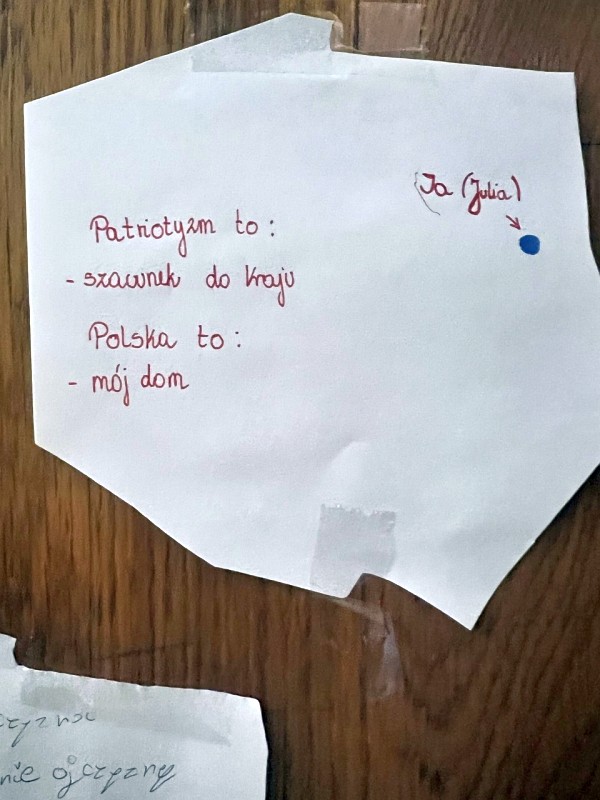 Ja (Julia)
Patriotyzm to:
- szacunek do kraju
Polska to:
- mój dom
nie ojczyzny